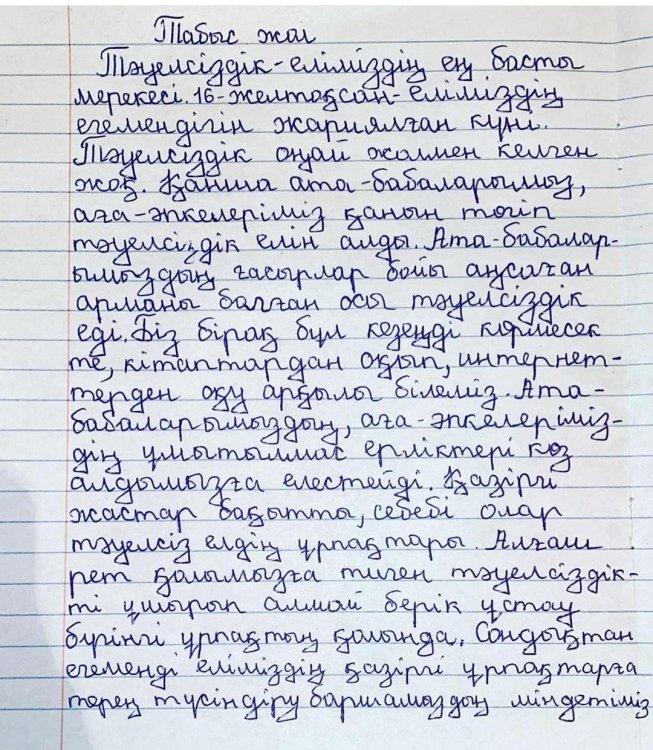 Табыс жол
Тәуелсіздік-еліміздің ең басты
мерекесі. 16-желтоқсан-еліміздің
егемендігін жариялған күні.
Тәуелсіздік оңай жолмен келген
жоқ. Қанша ата-бабаларымыз,
аға-әпкелеріміз қанын төгіп
тәуелсіздік елін алды. Ата-бабалар-
ымыздың ғасырлар бойы аңсаған
арманы болған осы тәуелсіздік
еді. Біз бірақ бұл кезеңді көрмесек
те, кітаптардан оқып, интернет-
терден оқу арқылы білеміз. Ата-
бабаларымыздың, аға-әпкелеріміз-
дің ұмытылмас ерліктері көз
алдымызға елестейді. Қазіргі
жастар бақытты, себебі олар
тәуелсіз елдің ұрпақтары. Алғаш
рет қолымызға тиген тәуелсіздік-
ті ұшырып алмай берік ұстау
бүгінгі ұрпақтың қолында. Сондықтан
егеменді еліміздің қазіргі ұрпақтарға
терең түсіндіру баршамыздың міндетіміз